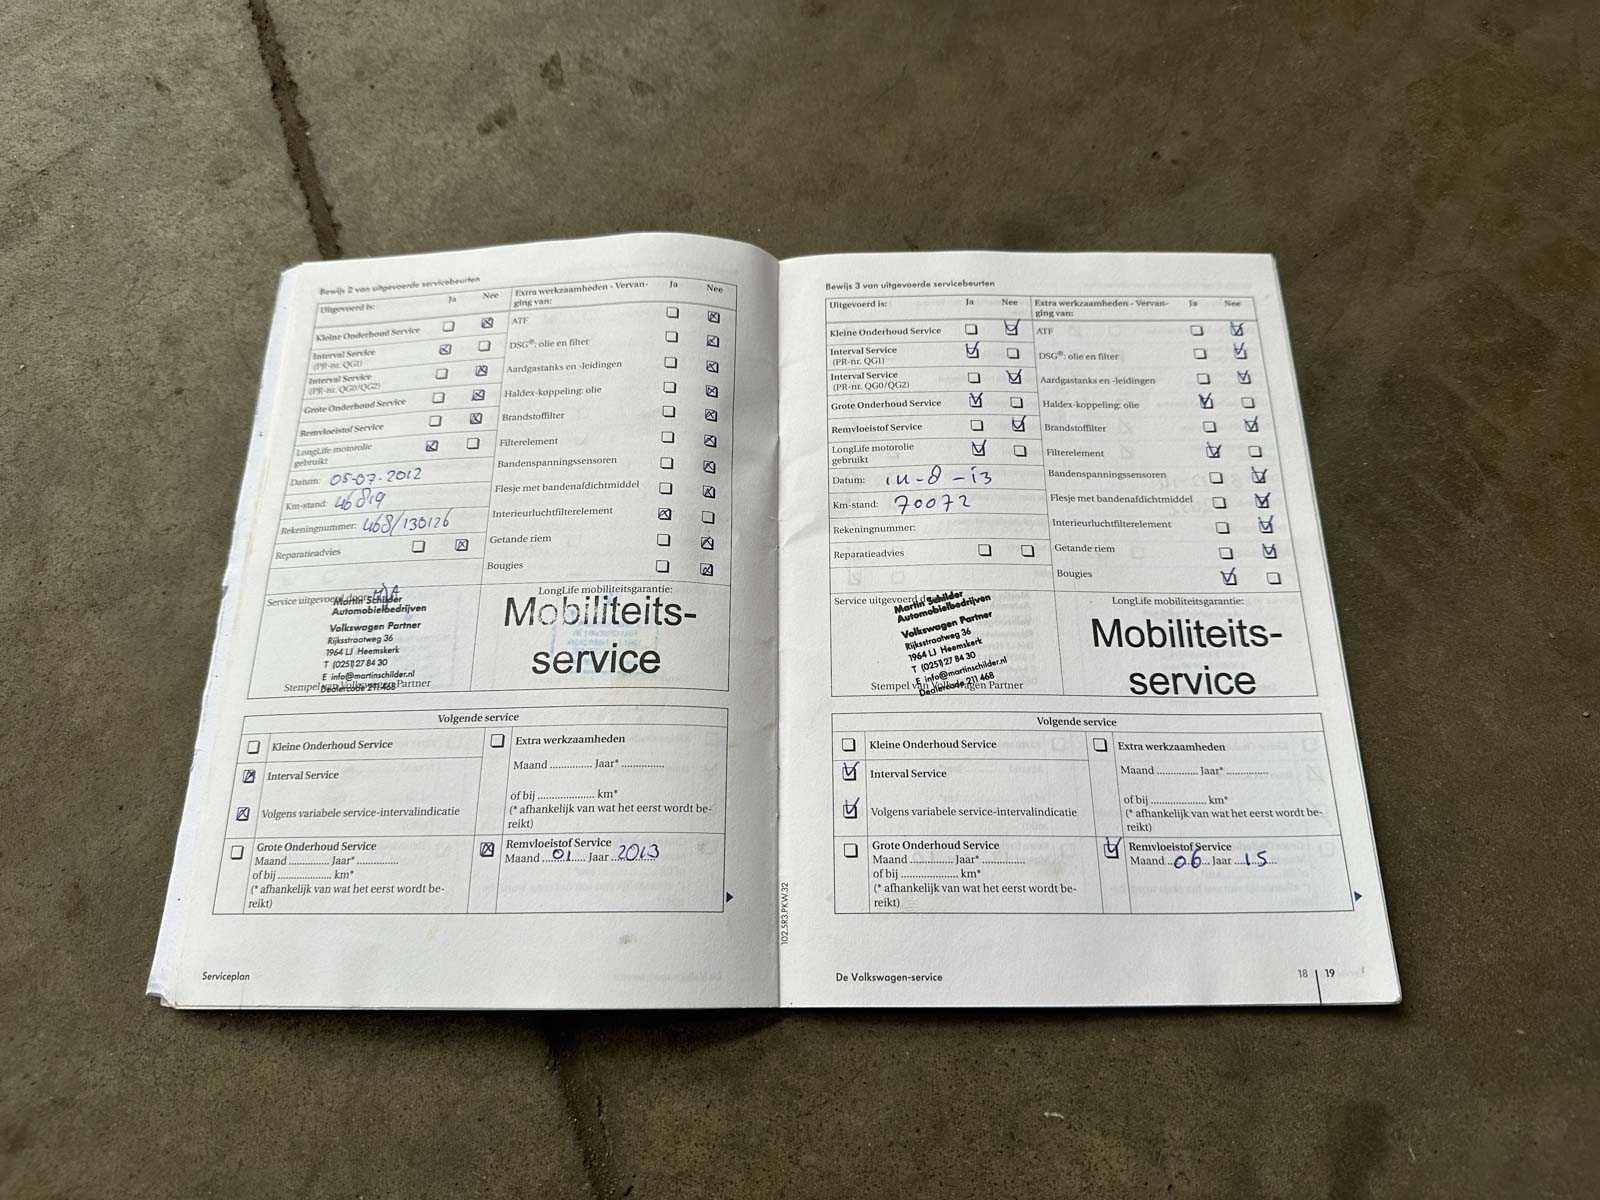 Bewijs 2 van uitgevoerde servicebeurten
Uitgevoerd is: Ja Nee
Kleine Onderhoud Service
Interval Service
(PR-nr. QG1)
Interval Service
(PR-nr. QG0/QG2)
Grote Onderhoud Service
Remvloeistof Service
LongLife motorolie
gebruikt
Datum: 05-07-2012
Km-stand: 46819
Rekeningnummer: 468/130126
Reparatieadvies
Extra werkzaamheden - Vervan- Ja Nee
ging van:
ATF
DSG®: olie en filter
Aardgastanks en -leidingen
Haldex-koppeling: olie
Brandstoffilter
Filterelement
Bandenspanningssensoren
Flesje met bandenafdichtmiddel
Interieurluchtfilterelement
Getande riem
Bougies
Service uitgevoerd door:
Martin Schilder
Automobielbedrijven
Volkswagen Partner
Rijksstraatweg 36
1964 LJ Heemskerk
T (0251) 27 84 30
E info@martinschilder.nl
Dealercode 211 468
Stempel van Volkswagen Partner
LongLife mobiliteitsgarantie:
Mobiliteits-
service
Volgende service
Kleine Onderhoud Service
Interval Service
Volgens variabele service-intervalindicatie
Grote Onderhoud Service
Maand .............. Jaar* ..............
of bij .................... km*
(* afhankelijk van wat het eerst wordt be-
reikt)
Extra werkzaamheden
Maand .............. Jaar* ..............
of bij .................... km*
(* afhankelijk van wat het eerst wordt be-
reikt)
Remvloeistof Service
Maand 01 Jaar 2013
Serviceplan
Bewijs 3 van uitgevoerde servicebeurten
Uitgevoerd is: Ja Nee
Kleine Onderhoud Service
Interval Service
(PR-nr. QG1)
Interval Service
(PR-nr. QG0/QG2)
Grote Onderhoud Service
Remvloeistof Service
LongLife motorolie
gebruikt
Datum: 14-8-13
Km-stand: 70072
Rekeningnummer:
Reparatieadvies
Extra werkzaamheden - Vervan- Ja Nee
ging van:
ATF
DSG®: olie en filter
Aardgastanks en -leidingen
Haldex-koppeling: olie
Brandstoffilter
Filterelement
Bandenspanningssensoren
Flesje met bandenafdichtmiddel
Interieurluchtfilterelement
Getande riem
Bougies
Service uitgevoerd
Martin Schilder
Automobielbedrijven
Volkswagen Partner
Rijksstraatweg 36
1964 LJ Heemskerk
T (0251) 27 84 30
E info@martinschilder.nl
Dealercode 211 468
Stempel van Volkswagen Partner
LongLife mobiliteitsgarantie:
Mobiliteits-
service
Volgende service
Kleine Onderhoud Service
Interval Service
Volgens variabele service-intervalindicatie
Grote Onderhoud Service
Maand .............. Jaar* ..............
of bij .................... km*
(* afhankelijk van wat het eerst wordt be-
reikt)
Extra werkzaamheden
Maand .............. Jaar* ..............
of bij .................... km*
(* afhankelijk van wat het eerst wordt be-
reikt)
Remvloeistof Service
Maand 06 Jaar 15
102.5R3.PKW.32
De Volkswagen-service
18 | 19